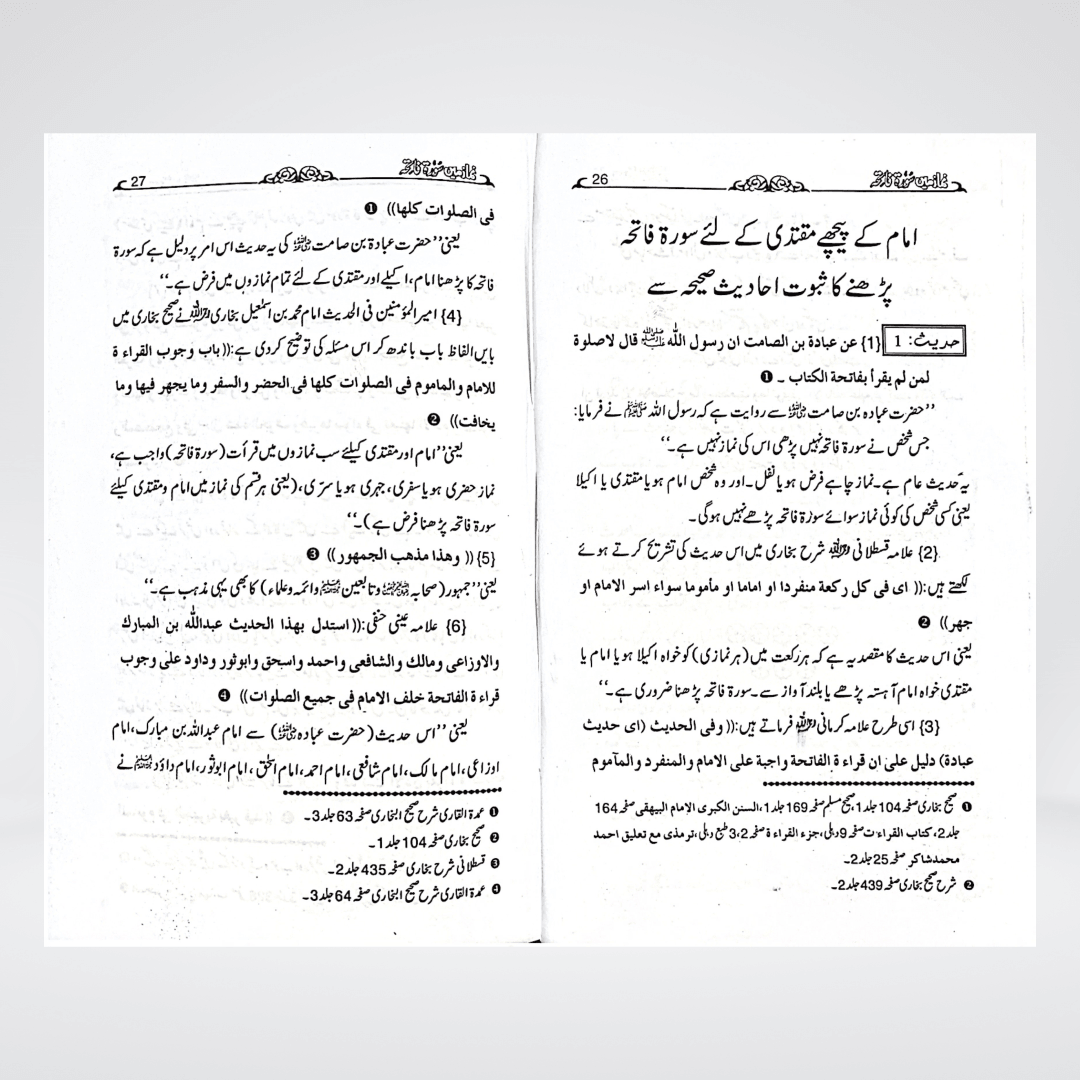 نماز میں سورۃ فاتحہ
26
امام کے پیچھے مقتدی کے لئے سورۃ فاتحہ
پڑھنے کا ثبوت احادیث صحیحہ سے
حدیث: 1 {1} عن عبادة بن الصامت ان رسول الله ﷺ قال لاصلوة
لمن لم يقرأ بفاتحة الكتاب ۔ ❶
’’حضرت عبادہ بن صامت رضی اللہ عنہ سے روایت ہے کہ رسول اللہ ﷺ نے فرمایا:
جس شخص نے سورۃ فاتحہ نہیں پڑھی اس کی نماز نہیں ہے۔‘‘
یہ حدیث عام ہے۔ نماز چاہے فرض ہو یا نفل۔ اور وہ شخص امام ہو یا مقتدی یا اکیلا
یعنی کسی شخص کی کوئی نماز سوائے سورۃ فاتحہ پڑھے نہیں ہوگی۔
{2} علامہ قسطلانی رحمہ اللہ شرح بخاری میں اس حدیث کی تشریح کرتے ہوئے
لکھتے ہیں:(( اى فى كل ركعة منفردا او اماما او مأموما سواء اسر الامام او
جهر)) ❷
یعنی اس حدیث کا مقصد یہ ہے کہ ہر رکعت میں (ہر نمازی) کو خواہ اکیلا ہو یا امام یا
مقتدی خواہ امام آہستہ پڑھے یا بلند آواز سے۔ سورۃ فاتحہ پڑھنا ضروری ہے۔‘‘
{3} اسی طرح علامہ کرمانی رحمہ اللہ فرماتے ہیں:(( وفى الحديث (اى حديث
عبادة) دليل على ان قراءة الفاتحة واجبة على الامام والمنفرد والمآموم
❶ صحیح بخاری صفحہ 104 جلد 1، صحیح مسلم صفحہ 169 جلد 1، السنن الکبری الامام البیہقی صفحہ 164
جلد 2، کتاب القراءت صفحہ 9 دہلی، جزء القراءۃ صفحہ 2،3 طبع دہلی، ترمذی مع تعلیق احمد
محمد شاکر صفحہ 25 جلد 2۔
❷ شرح صحیح بخاری صفحہ 439 جلد 2۔
نماز میں سورۃ فاتحہ
27
فى الصلوات كلها)) ❶
یعنی’’حضرت عبادۃ بن صامت رضی اللہ عنہ کی یہ حدیث اس امر پر دلیل ہے کہ سورۃ
فاتحہ کا پڑھنا امام، اکیلے اور مقتدی کے لئے تمام نمازوں میں فرض ہے۔‘‘
{4} امیر المؤمنین فی الحدیث امام محمد بن اسمٰعیل بخاری رحمہ اللہ نے صحیح بخاری میں
بایں الفاظ باب باندھ کر اس مسئلہ کی توضیح کردی ہے:((باب وجوب القراء ة
للامام والماموم فى الصلوات كلها فى الحضر والسفر وما يجهر فيها وما
يخافت)) ❷
یعنی’’امام اور مقتدی کیلئے سب نمازوں میں قرأت (سورۃ فاتحہ) واجب ہے،
نماز حضری ہو یا سفری، جہری ہو یا سری، (یعنی ہر قسم کی نماز میں امام و مقتدی کیلئے
سورۃ فاتحہ پڑھنا فرض ہے)۔‘‘
{5}(( وهذا مذهب الجمهور)) ❸
یعنی’’جمہور (صحابہ رضی اللہ عنہم وتابعین رحمہم اللہ وائمہ وعلماء) کا بھی یہی مذہب ہے۔‘‘
{6} علامہ عینی حنفی:(( استدل بهذا الحديث عبدالله بن المبارك
والاوزاعى ومالك والشافعى واحمد واسحق وابوثور وداود على وجوب
قراءة الفاتحة خلف الامام فى جميع الصلوات)) ❹
یعنی’’اس حدیث (حضرت عبادہ رضی اللہ عنہ) سے امام عبداللہ بن مبارک، امام
اوزاعی، امام مالک، امام شافعی، امام احمد، امام اسحٰق، امام ابوثور، امام داؤد رحمہم اللہ نے
❶ عمدۃ القاری شرح صحیح البخاری صفحہ 63 جلد 3۔
❷ صحیح بخاری صفحہ 104 جلد 1۔
❸ قسطلانی شرح بخاری صفحہ 435 جلد 2۔
❹ عمدۃ القاری شرح صحیح البخاری صفحہ 64 جلد 3۔